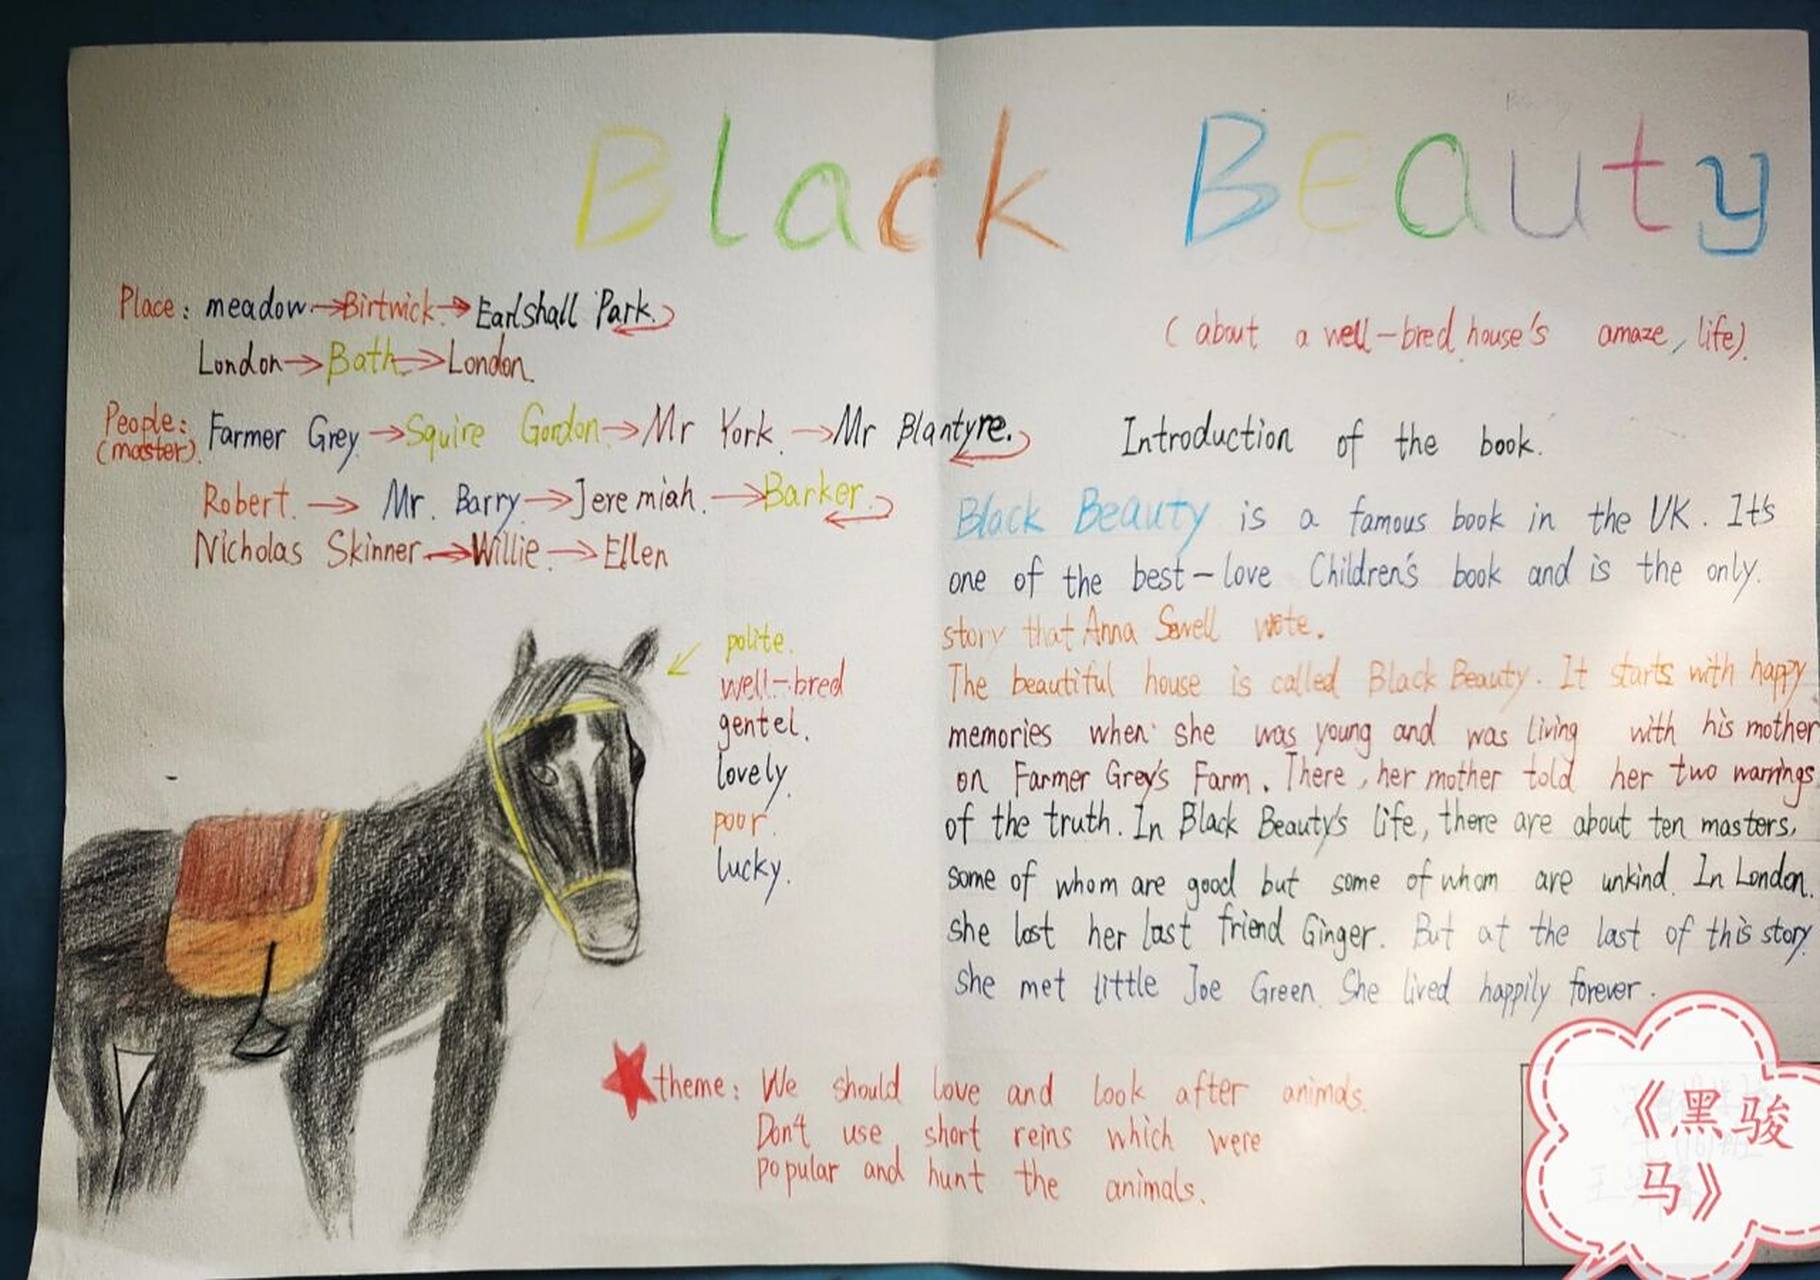 Black Beauty
Place: meadow→Birtwick→Earlshall Park.
London→Bath→London.
(about a well-bred house's amaze, life).
People: (master). Farmer Grey→Squire Gordon→Mr York→Mr Blantyre.
Robert.→Mr. Barry→Jeremiah.→Barker.
Nicholas Skinner→Willie.→Ellen
polite.
well-bred
gentel.
lovely.
poor.
lucky.
Introduction of the book.
Black Beauty is a famous book in the UK. It's
one of the best-love Children's book and is the only.
story that Anna Sewell wote.
The beautiful house is called Black Beauty. It starts with happy
memories when she was young and was living with his mother
on Farmer Grey's Farm. There, her mother told her two warrings
of the truth. In Black Beauty's life, there are about ten masters,
some of whom are good but some of whom are unkind. In London.
she lost her last friend Ginger. But at the last of this story.
she met little Joe Green. She lived happily forever.
theme: We should love and look after animals.
Don't use short reins which were
popular and hunt the animals.
《黑骏
马》